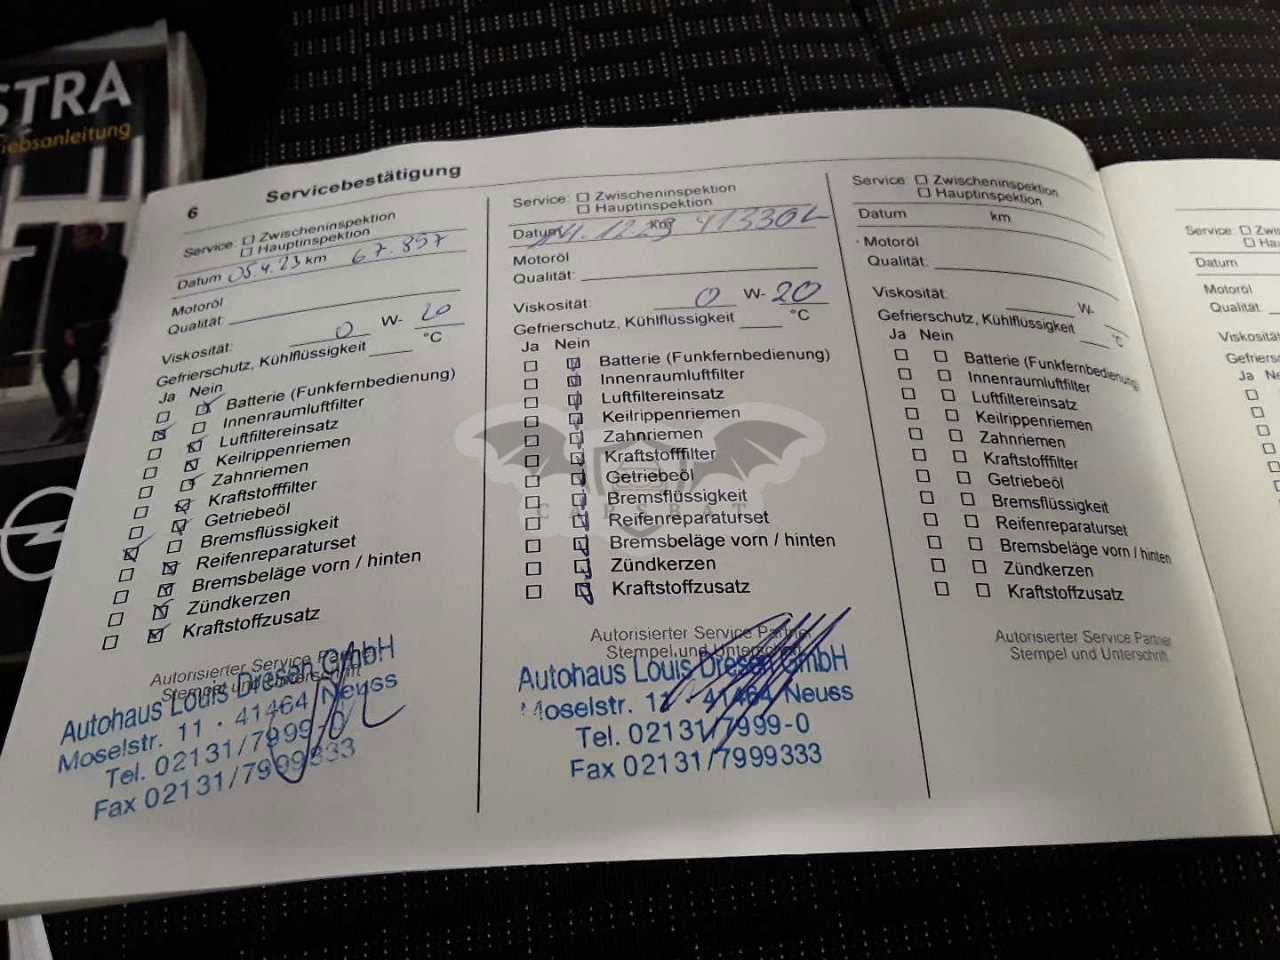 STRA
iebsanleitung
6
Servicebestätigung
Service: Zwischeninspektion
Hauptinspektion
Datum 05.4.23 km 67.897
Motoröl
Qualität:
Viskosität: 0 W- 20
Gefrierschutz, Kühlflüssigkeit °C
Ja Nein
Batterie (Funkfernbedienung)
Innenraumluftfilter
Luftfiltereinsatz
Keilrippenriemen
Zahnriemen
Kraftstofffilter
Getriebeöl
Bremsflüssigkeit
Reifenreparaturset
Bremsbeläge vorn / hinten
Zündkerzen
Kraftstoffzusatz
Autorisierter Service Partner
Stempel und Unterschrift
Autohaus Louis Dresen GmbH
Moselstr. 11 · 41464 Neuss
Tel. 02131/7999-0
Fax 02131/7999333
Service: Zwischeninspektion
Hauptinspektion
Datum km
Motoröl
Qualität:
Viskosität: 0 W- 20
Gefrierschutz, Kühlflüssigkeit °C
Ja Nein
Batterie (Funkfernbedienung)
Innenraumluftfilter
Luftfiltereinsatz
Keilrippenriemen
Zahnriemen
Kraftstofffilter
Getriebeöl
Bremsflüssigkeit
Reifenreparaturset
Bremsbeläge vorn / hinten
Zündkerzen
Kraftstoffzusatz
Autorisierter Service Partner
Stempel und Unterschrift
Autohaus Louis Dresen GmbH
Moselstr. 11 · 41464 Neuss
Tel. 02131/7999-0
Fax 02131/7999333
CARSBAT
Service: Zwischeninspektion
Hauptinspektion
Datum km
Motoröl
Qualität:
Viskosität: W-
Gefrierschutz, Kühlflüssigkeit °C
Ja Nein
Batterie (Funkfernbedienung)
Innenraumluftfilter
Luftfiltereinsatz
Keilrippenriemen
Zahnriemen
Kraftstofffilter
Getriebeöl
Bremsflüssigkeit
Reifenreparaturset
Bremsbeläge vorn / hinten
Zündkerzen
Kraftstoffzusatz
Autorisierter Service Partner
Stempel und Unterschrift
Service: Zwi
Hau
Datum
Motoröl
Qualität:
Viskosität
Gefriers
Ja Ne